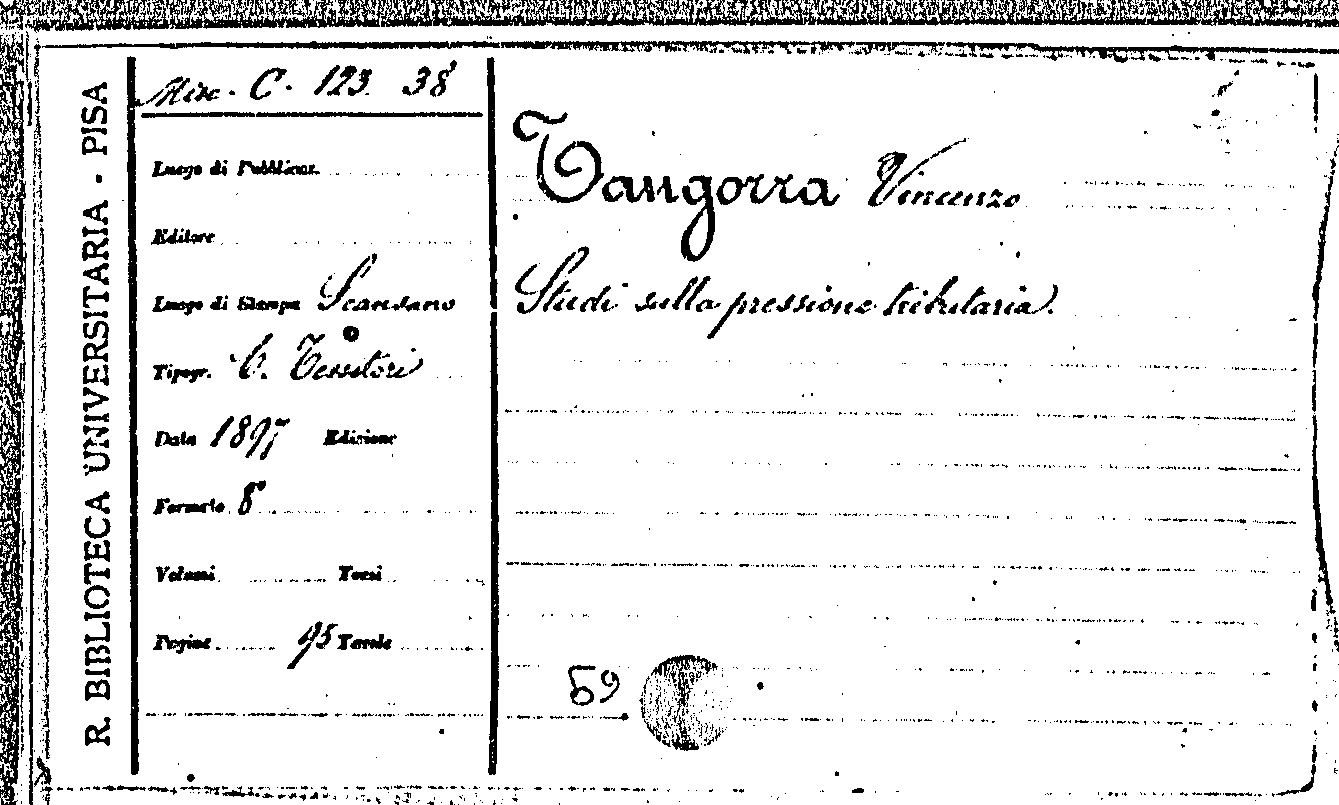 R. BIBLIOTECA UNIVERSITARIA - PISA
Misc. C. 123. 38
Luogo di Pubblicaz.
Editore
Luogo di Stampa Scansano
Tipogr. C. Tessitori
Data 1897 Edizione
Formato 8°
Volumi Tomi
Pagine 95 Tavole
Tangorra Vincenzo
Studi sulla pressione tributaria.
59